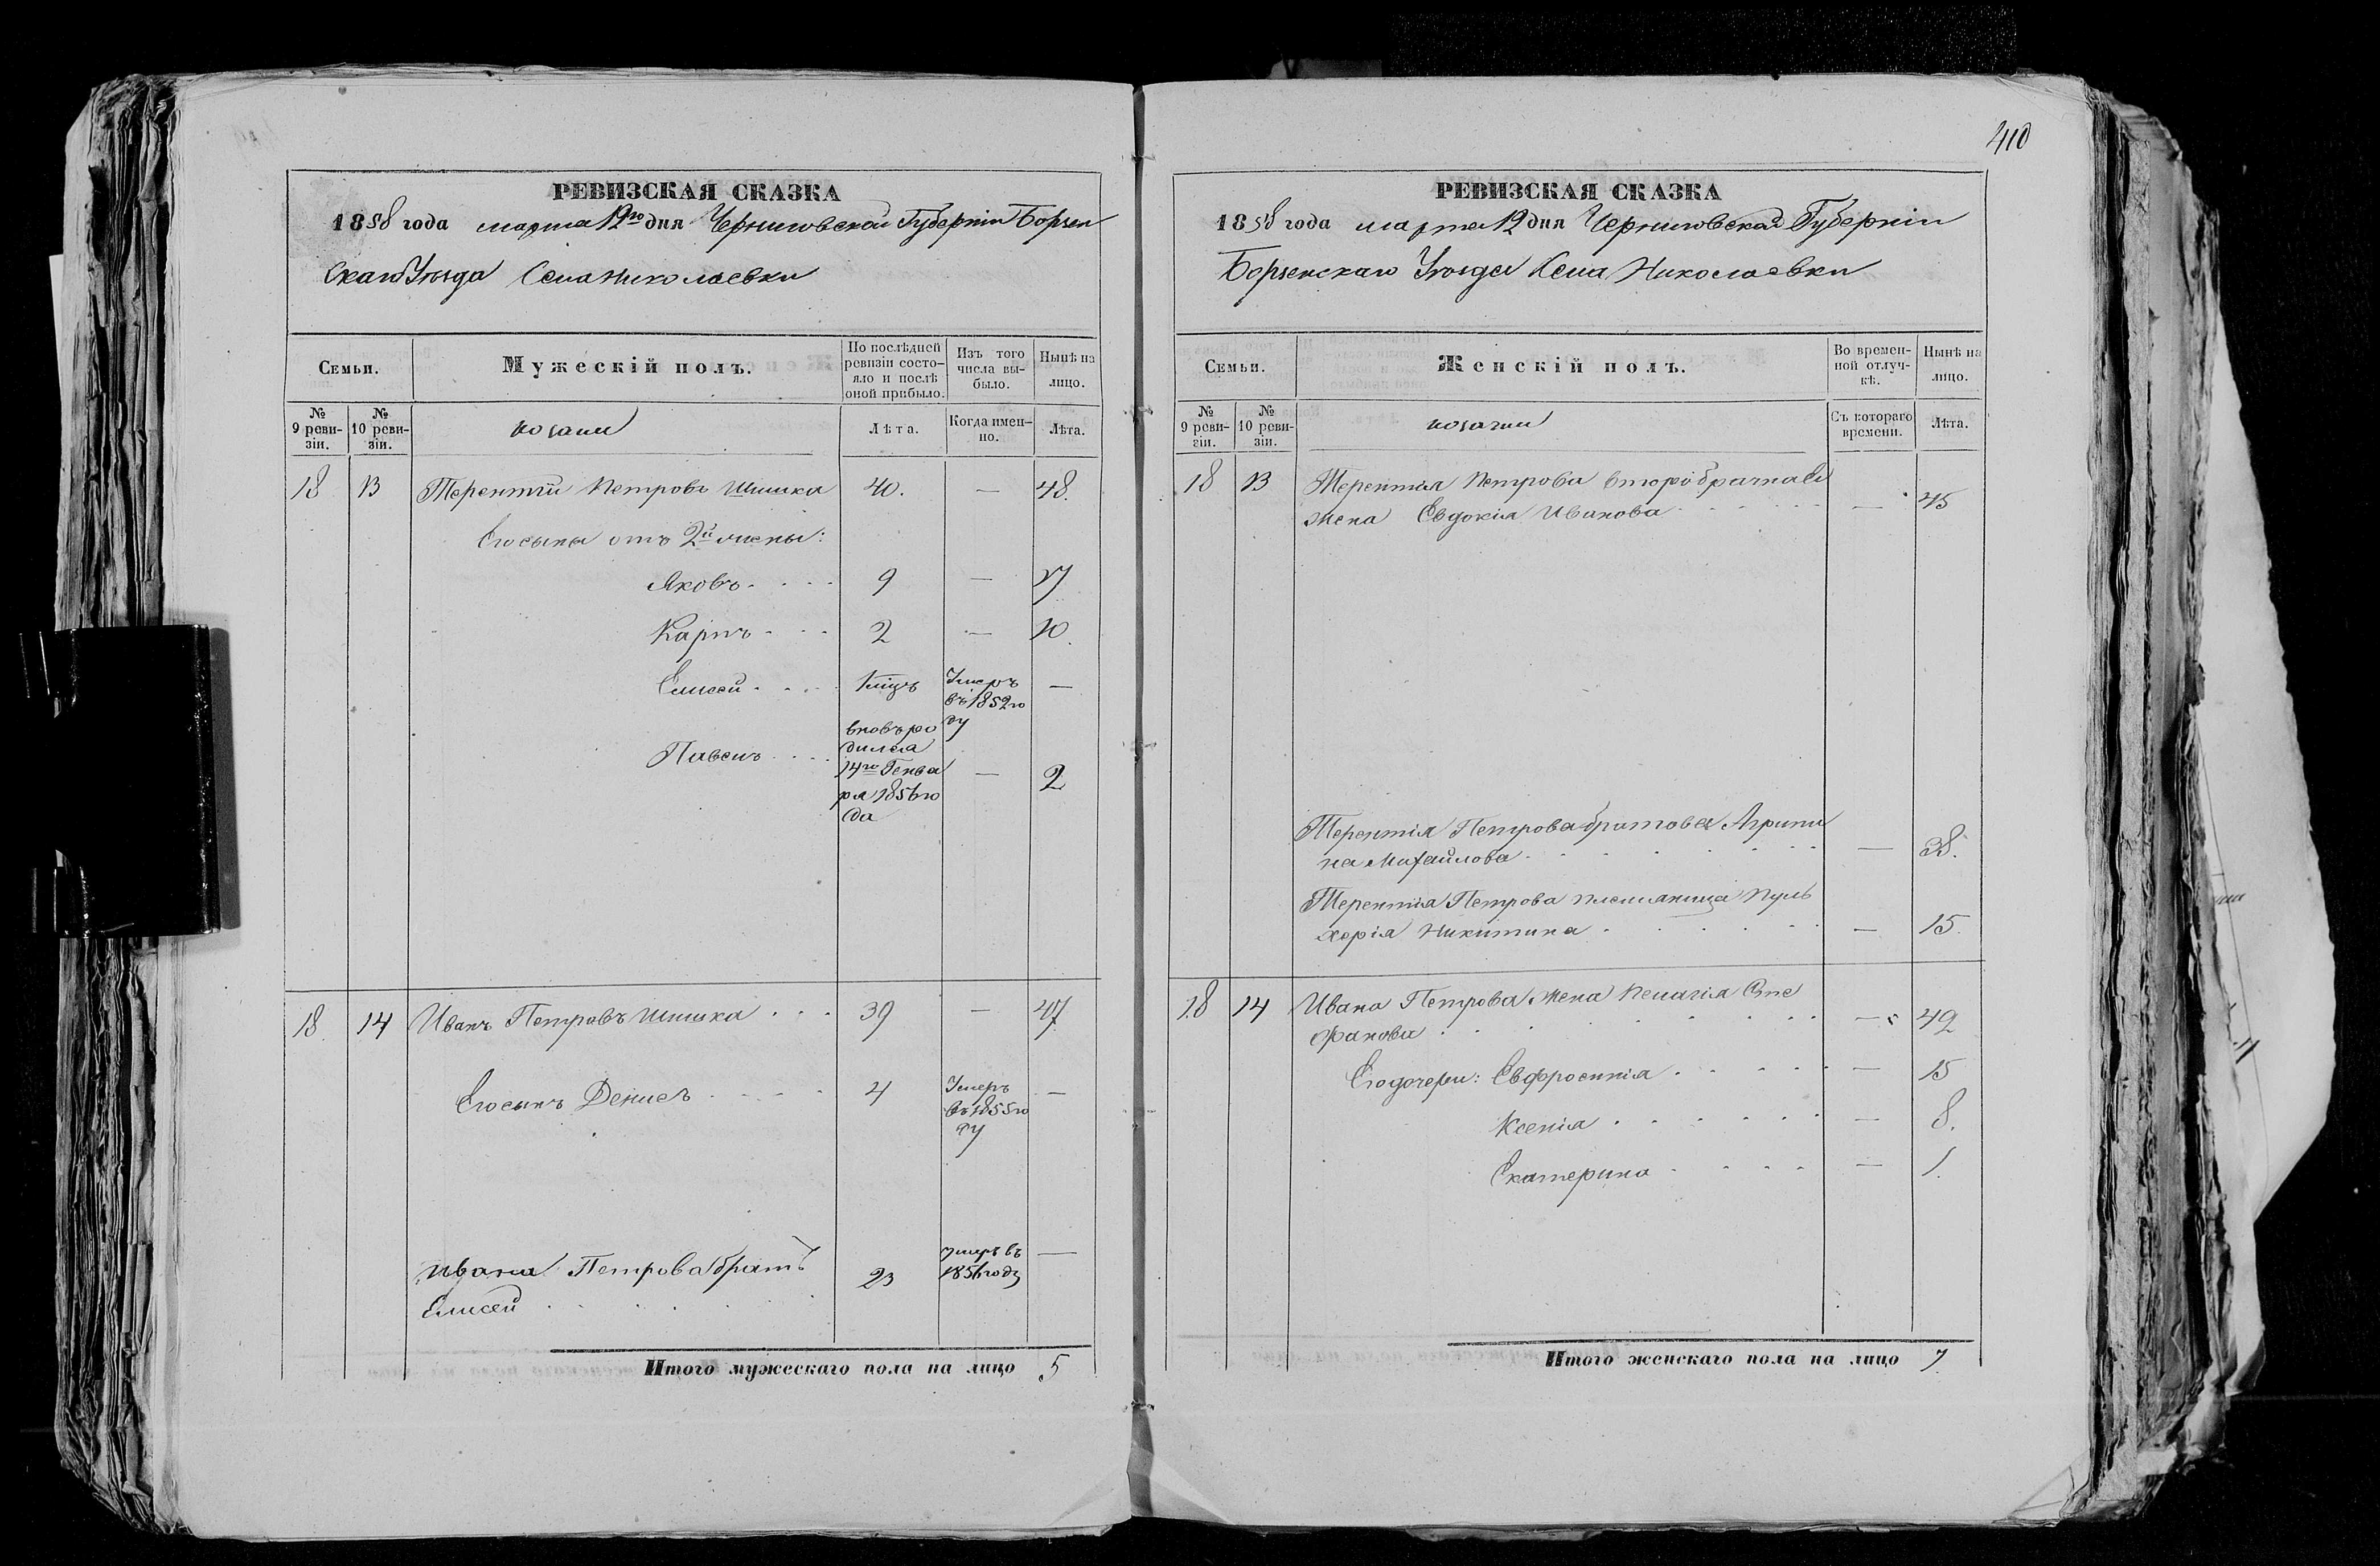 410
РЕВИЗСКАЯ СКАЗКА
1858 года марта 12го дня Черниговской Губерніи Борзен
скаго Уѣзда Села Николаевки
Семьи. Мужескій полъ. По послѣдней ревизіи состояло и послѣ оной прибыло. Изъ того числа выбыло. Нынѣ на лицо.
№ 9 ревизіи. № 10 ревизіи. козаки Лѣта. Когда именно. Лѣта.
18 13 Терентій Петровъ Шишка 40. — 48.
Его сыны отъ 2й жены:
Яковъ 9 — 17
Карпъ 2 — 10.
Елисей Умеръ въ 1852 году —
Павелъ вновь родился 14го Генваря 1856 года — 2
18 14 Иванъ Петровъ Шишка 39 — 47.
Его сынъ Денисъ 4 Умеръ въ 1855 году —
Ивана Петрова братъ
Елисей 23 умеръ въ 1856 году —
Итого мужескаго пола на лицо 5
РЕВИЗСКАЯ СКАЗКА
1858 года марта 12 дня Черниговской Губерніи
Борзенскаго Уѣзда Села Николаевки
Семьи. Женскій полъ. Во временной отлучкѣ. Нынѣ на лицо.
№ 9 ревизіи. № 10 ревизіи. козачки Съ котораго времени. Лѣта.
18 13 Терентія Петрова второбрачная
жена Евдокія Иванова — 45
Терентія Петрова братова Агрипи
на Михайлова — 38.
Терентія Петрова племяница Пуль
херія Никитина — 15.
18 14 Ивана Петрова жена Пелагія Сте
фанова — 42
Его дочери: Евфросинія — 15
Ксенія — 8.
Екатерина — 1.
Итого женскаго пола на лицо 7.